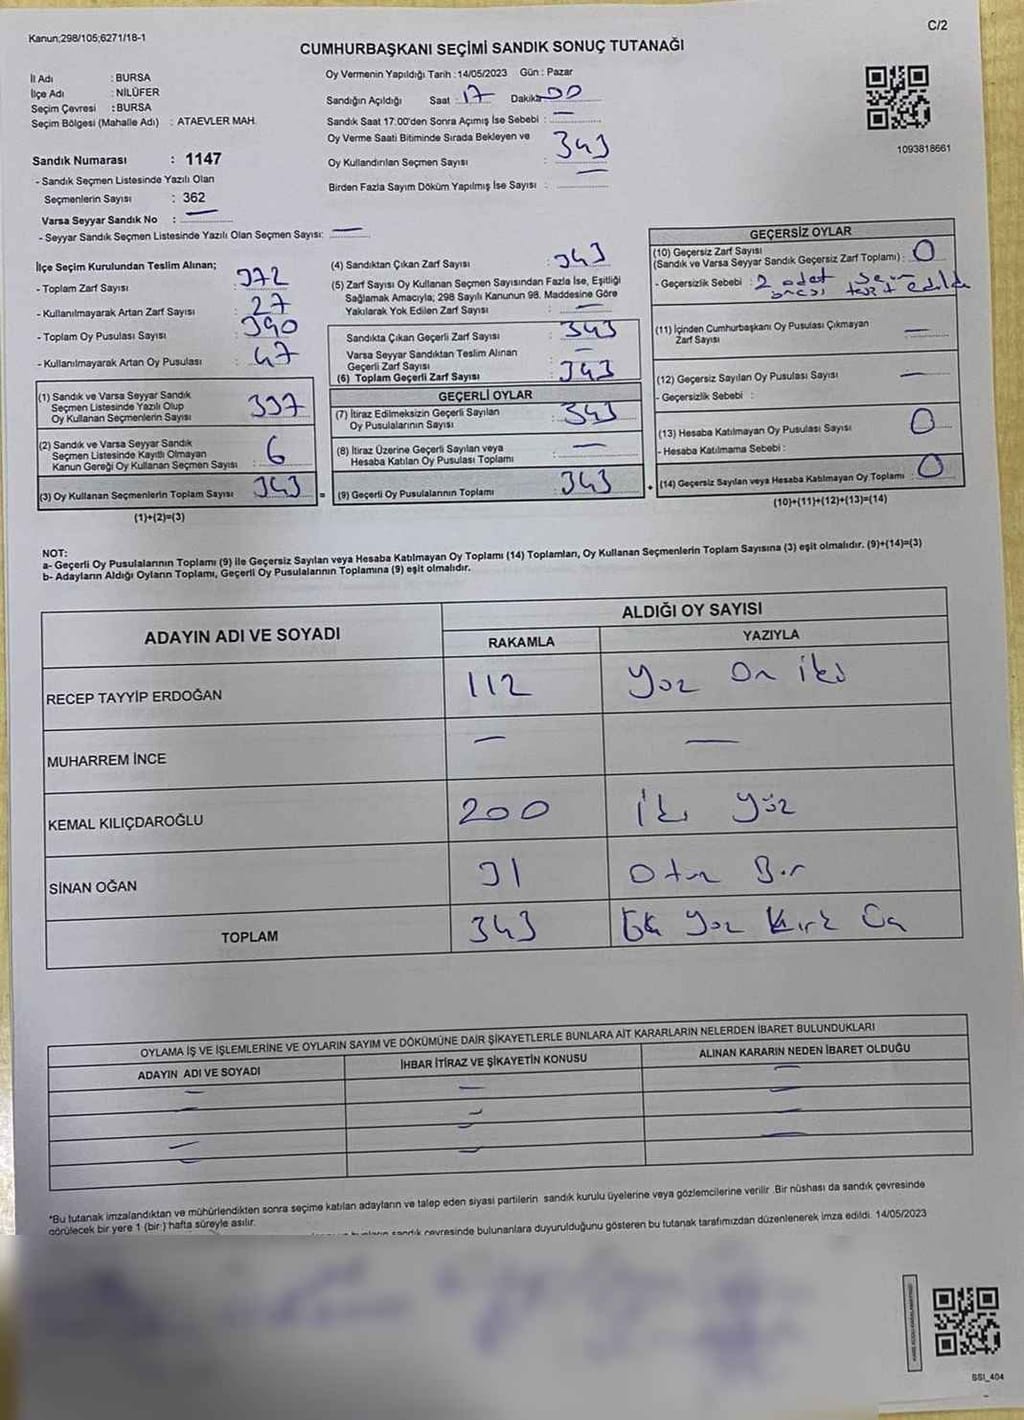 Kanun;298/105;6271/18-1
C/2
CUMHURBAŞKANI SEÇİMİ SANDIK SONUÇ TUTANAĞI
İl Adı : BURSA
İlçe Adı : NİLÜFER
Seçim Çevresi : BURSA
Seçim Bölgesi (Mahalle Adı) : ATAEVLER MAH.
Sandık Numarası : 1147
- Sandık Seçmen Listesinde Yazılı Olan
Seçmenlerin Sayısı : 362
Varsa Seyyar Sandık No : —
- Seyyar Sandık Seçmen Listesinde Yazılı Olan Seçmen Sayısı: —
Oy Vermenin Yapıldığı Tarih : 14/05/2023 Gün : Pazar
Sandığın Açıldığı Saat : 17 Dakika 00
Sandık Saat 17.00'den Sonra Açımış İse Sebebi : —
Oy Verme Saati Bitiminde Sırada Bekleyen ve
Oy Kullandırılan Seçmen Sayısı : 343
Birden Fazla Sayım Döküm Yapılmış İse Sayısı : —
1093818661
İlçe Seçim Kurulundan Teslim Alınan;
- Toplam Zarf Sayısı : 372
- Kullanılmayarak Artan Zarf Sayısı : 27
- Toplam Oy Pusulası Sayısı : 390
- Kullanılmayarak Artan Oy Pusulası : 47
(1) Sandık ve Varsa Seyyar Sandık
Seçmen Listesinde Yazılı Olup
Oy Kullanan Seçmenlerin Sayısı : 337
(2) Sandık ve Varsa Seyyar Sandık
Seçmen Listesinde Kayıtlı Olmayan
Kanun Gereği Oy Kullanan Seçmen Sayısı : 6
(3) Oy Kullanan Seçmenlerin Toplam Sayısı : 343
(1)+(2)=(3)
(4) Sandıktan Çıkan Zarf Sayısı : 343
(5) Zarf Sayısı Oy Kullanan Seçmen Sayısından Fazla İse, Eşitliği
Sağlamak Amacıyla; 298 Sayılı Kanunun 98. Maddesine Göre
Yakılarak Yok Edilen Zarf Sayısı : —
Sandıkta Çıkan Geçerli Zarf Sayısı : 343
Varsa Seyyar Sandıktan Teslim Alınan
Geçerli Zarf Sayısı : —
(6) Toplam Geçerli Zarf Sayısı : 343
GEÇERLİ OYLAR
(7) İtiraz Edilmeksizin Geçerli Sayılan
Oy Pusulalarının Sayısı : 343
(8) İtiraz Üzerine Geçerli Sayılan veya
Hesaba Katılan Oy Pusulası Toplamı : —
= (9) Geçerli Oy Pusulalarının Toplamı : 343
GEÇERSİZ OYLAR
(10) Geçersiz Zarf Sayısı
(Sandık ve Varsa Seyyar Sandık Geçersiz Zarf Toplamı) : 0
- Geçersizlik Sebebi : 2 adet
edildi
(11) İçinden Cumhurbaşkanı Oy Pusulası Çıkmayan
Zarf Sayısı : —
(12) Geçersiz Sayılan Oy Pusulası Sayısı : —
- Geçersizlik Sebebi :
(13) Hesaba Katılmayan Oy Pusulası Sayısı : 0
- Hesaba Katılmama Sebebi :
+ (14) Geçersiz Sayılan veya Hesaba Katılmayan Oy Toplamı : 0
(10)+(11)+(12)+(13)=(14)
NOT:
a- Geçerli Oy Pusulalarının Toplamı (9) ile Geçersiz Sayılan veya Hesaba Katılmayan Oy Toplamı (14) Toplamları, Oy Kullanan Seçmenlerin Toplam Sayısına (3) eşit olmalıdır. (9)+(14)=(3)
b- Adayların Aldığı Oyların Toplamı, Geçerli Oy Pusulalarının Toplamına (9) eşit olmalıdır.
ADAYIN ADI VE SOYADI
ALDIĞI OY SAYISI
RAKAMLA YAZIYLA
RECEP TAYYİP ERDOĞAN 112 Yüz On iki
MUHARREM İNCE — —
KEMAL KILIÇDAROĞLU 200 İki yüz
SİNAN OĞAN 31 Otuz Bir
TOPLAM 343 Üç Yüz Kırk Üç
OYLAMA İŞ VE İŞLEMLERİNE VE OYLARIN SAYIM VE DÖKÜMÜNE DAİR ŞİKAYETLERLE BUNLARA AİT KARARLARIN NELERDEN İBARET BULUNDUKLARI
ADAYIN ADI VE SOYADI İHBAR İTİRAZ VE ŞİKAYETİN KONUSU ALINAN KARARIN NEDEN İBARET OLDUĞU
*Bu tutanak imzalandıktan ve mühürlendikten sonra seçime katılan adayların ve talep eden siyasi partilerin sandık kurulu üyelerine veya gözlemcilerine verilir. Bir nüshası da sandık çevresinde
görülecek bir yere 1 (bir) hafta süreyle asılır.
sandık çevresinde bulunanlara duyurulduğunu gösteren bu tutanak tarafımızdan düzenlenerek imza edildi. 14/05/2023
SSI_404